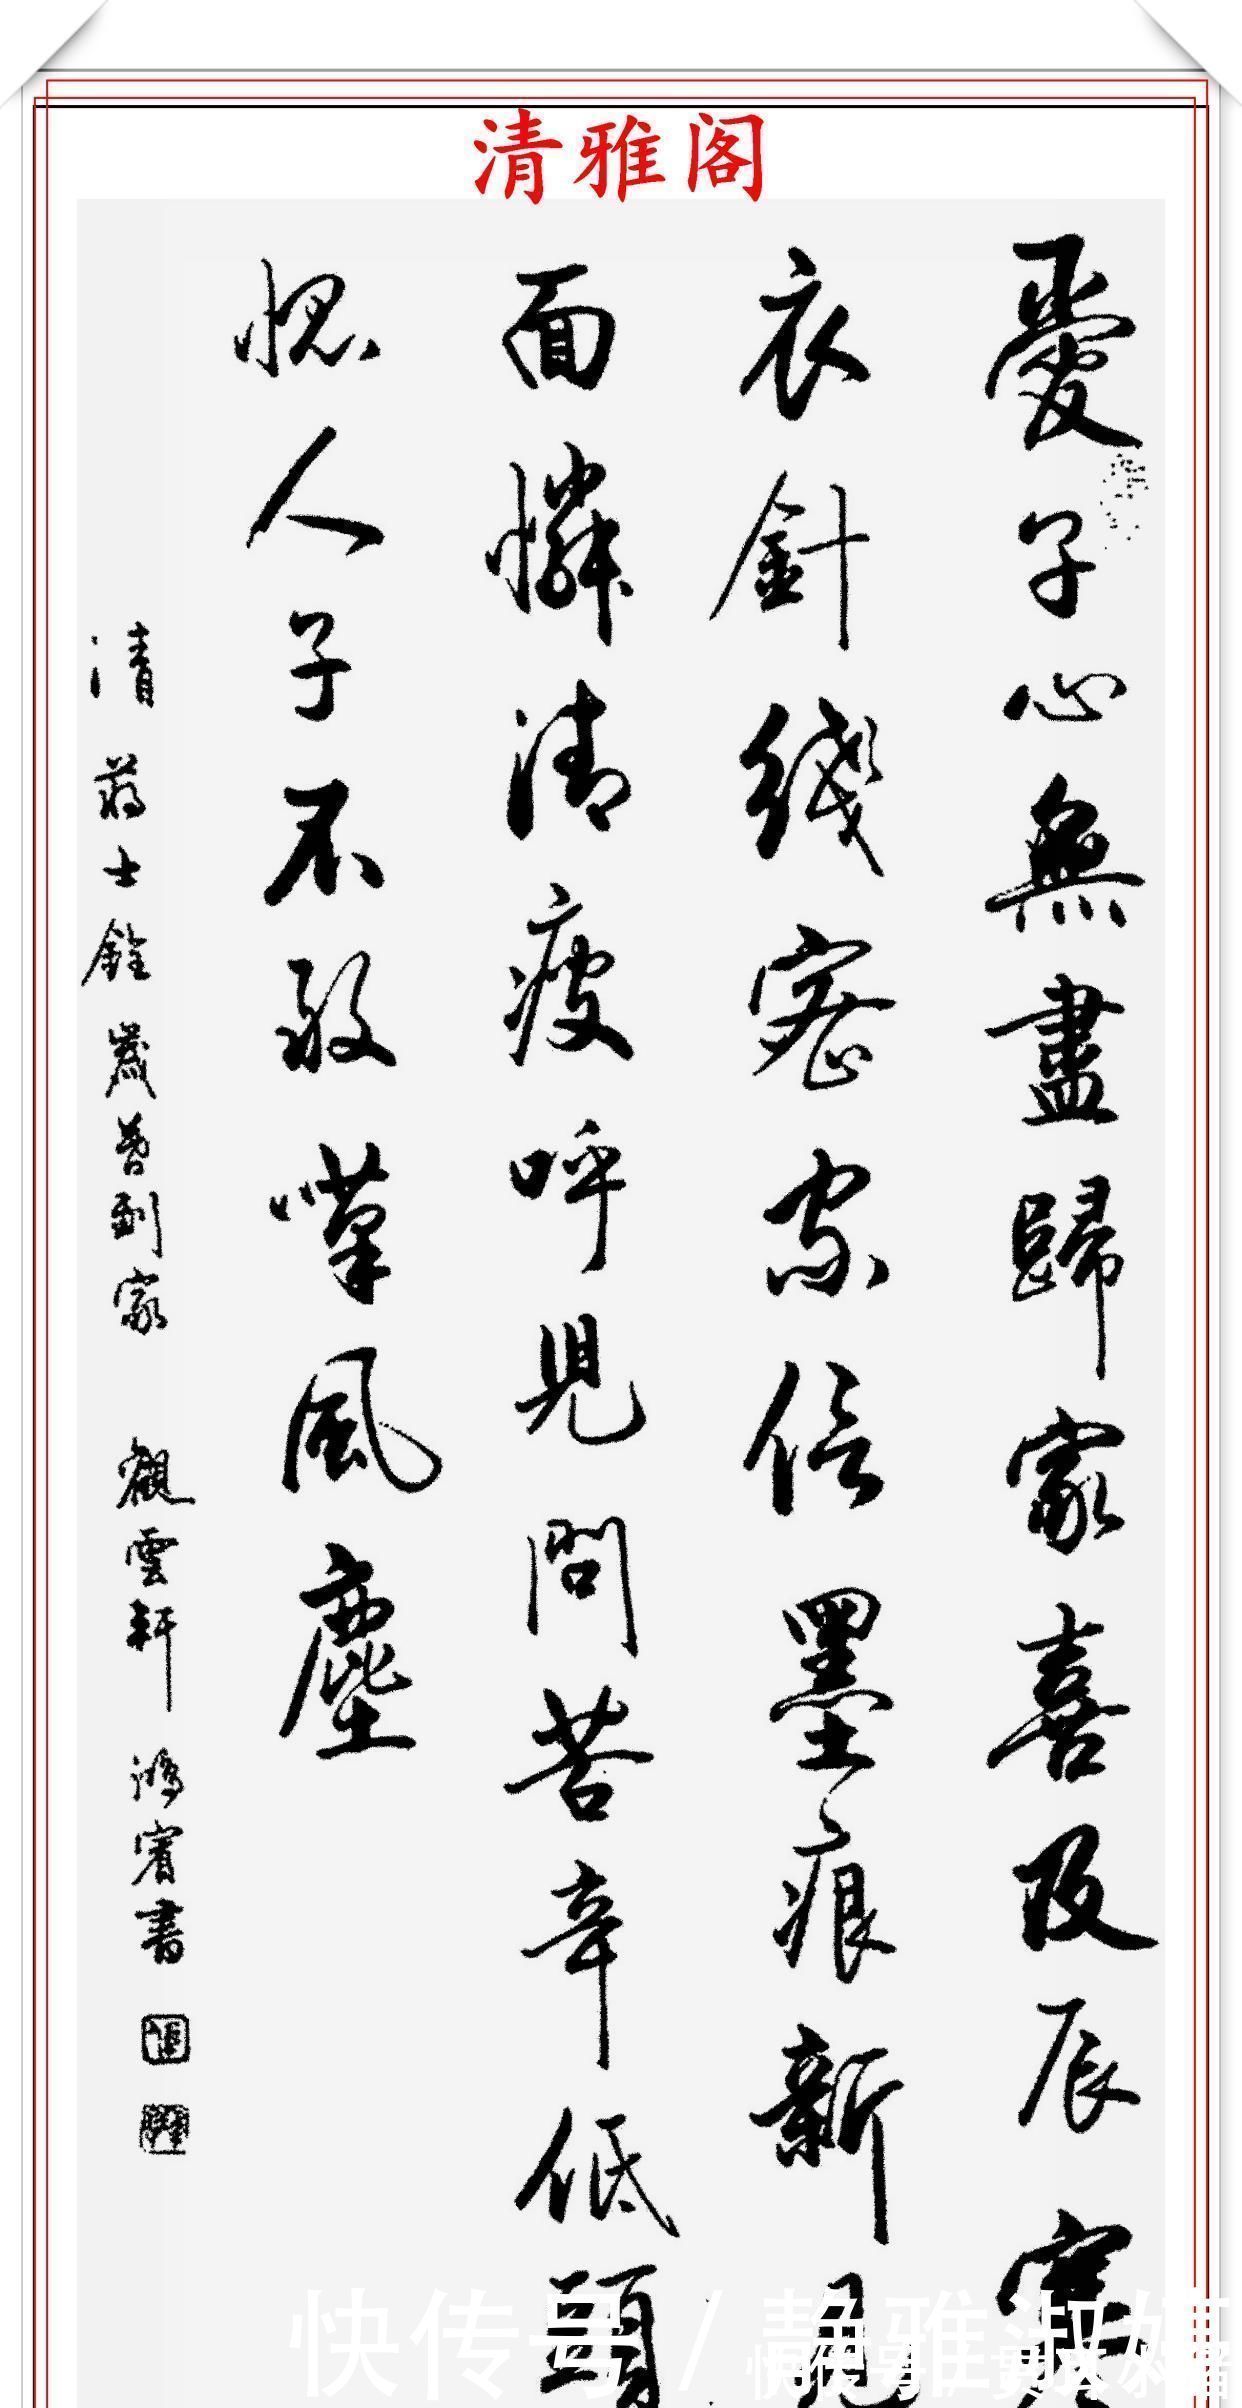 清雅阁
愛子心無盡歸家喜及辰寒
衣針綫密家信墨痕新見
面憐清瘦呼兒問苦辛低頭
愧人子不敢嘆風塵
清 蔣士銓 歲暮到家 觀雲軒 鴻賓書
快传号 / 静雅淑婷